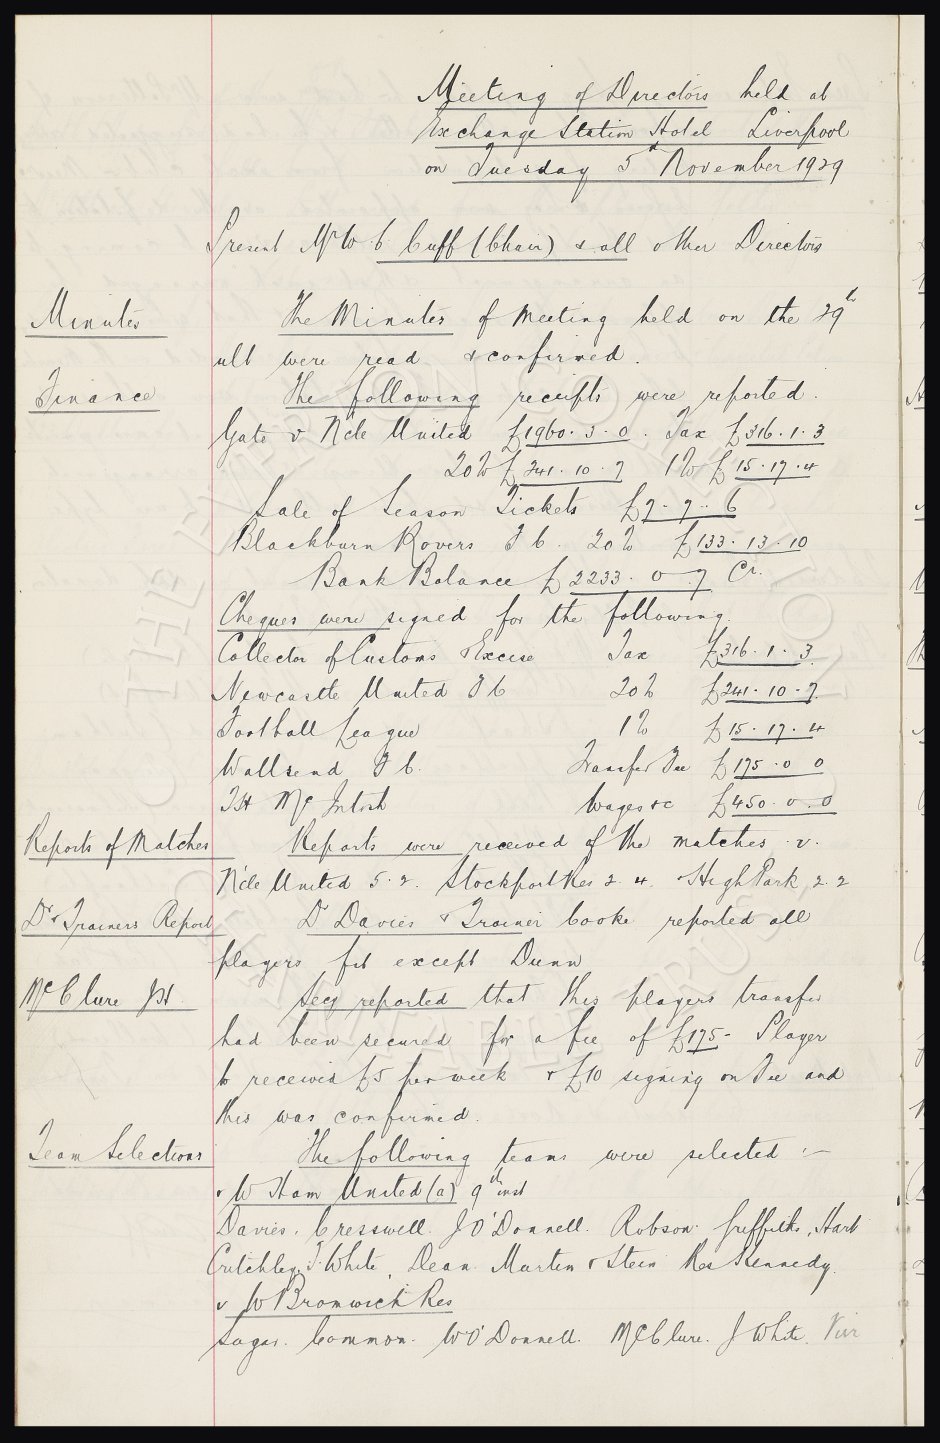 Meeting of Directors held at
Exchange Station Hotel Liverpool
on Tuesday 5th November 1929
Present Mr W C Cuff (Chair) & all other Directors
Minutes
The Minutes of Meeting held on the 29th
ult were read & confirmed.
Finance
The following receipts were reported.
Gate v N'cle United £1960.3.0. Tax £316.1.3
20% £241.10.7 1% £15.17.4
Sale of Season Tickets £7.7.6
Blackburn Rovers F C. 20% £133.13.10
Bank Balance £2233.0.7 Cr.
Cheques were signed for the following.
Collector of Customs & Excise Tax £316.1.3
Newcastle United F C 20% £241.10.7
Football League 1% £15.17.4
Wallsend F C. Transfer Fee £175.0 0
T H McIntosh Wages &c £450.0.0
Reports of Matches
Reports were received of the matches v.
N'cle United 5.2. Stockport Res 2.4. & High Park 2.2
Dr & Trainers Report
Dr Davies & Trainer Cooke reported all
players fit except Dunn
McClure J H.
Secy reported that this players transfer
had been secured for a fee of £175- Player
to receive £5 per week & £10 signing on Fee and
this was confirmed.
Team Selections
The following teams were selected :-
v W Ham United (a) 9th inst
Davies. Cresswell. J O'Donnell. Robson. Griffiths, Hart
Critchley, T. White, Dean. Martin & Stein Res Kennedy.
v W Bromwich Res
Sagar. Common. W O'Donnell. McClure. J White.
THE EVERTON COLLECTION
CHARITABLE TRUST